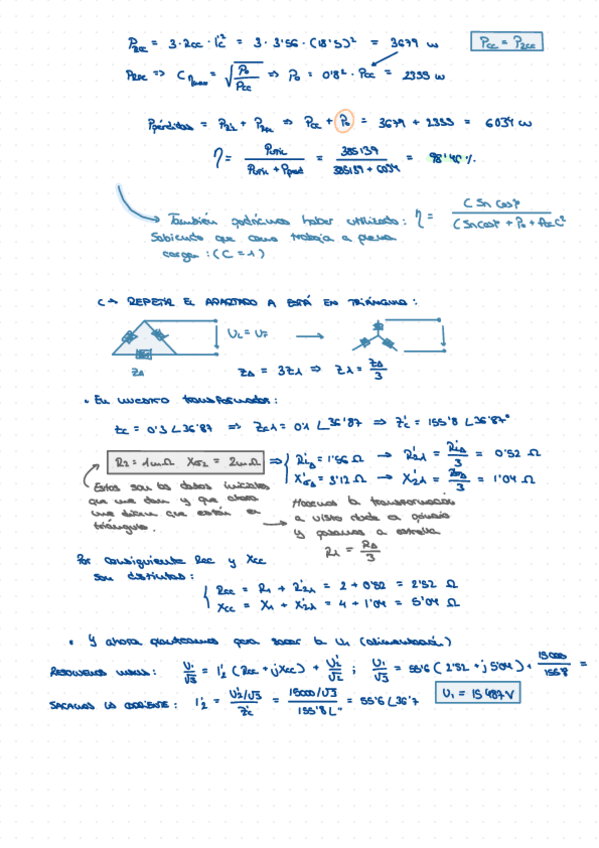 P2cc = 3·Rcc·I'2² = 3·3'56·(18'5)² = 3679 w
Pcc = P2cc
P2cc => Cηmax = √(Po/Pcc) => Po = 0'8²·Pcc = 2355 w
Ppérdidas = + => Pcc + Po = 3679 + 2355 = 6034 w
η = Pútil / (Pútil + Pperd) = 385139 / (385139 + 6034) = 98'46 %
También podríamos haber utilizado: η = C Sn cosφ / (C Sn cosφ + Po + Pcc C²)
Sabiendo que como trabaja a plena
carga: (C = 1)
C → REPETIR EL APARTADO A ESTÁ EN TRIÁNGULO:
UL = UF →
ZΔ
ZΔ = 3Zλ => Zλ = ZΔ/3
• En nuestro transformador:
Zc = 0'3∠36'87 => Zcλ = 0'1∠36'87 => Z'c = 155'8∠36'87°
R2 = 1mΩ Xσ2 = 2mΩ => R'2Δ = 1'56 Ω → R'2λ = R'2Δ/3 = 0'52 Ω
X'σΔ = 3'12 Ω → X'2λ = /3 = 1'04 Ω
Estos son los datos iniciales
que me dan y que ahora
me dicen que están en
triángulo.
Hacemos la transformación
a visto desde el primario
y pasamos a estrella
Rλ = RΔ/3
Por consiguiente Rcc y Xcc
son distintas:
Rcc = R1 + R'2λ = 2 + 0'52 = 2'52 Ω
Xcc = X1 + X'2λ = 4 + 1'04 = 5'04 Ω
• Y ahora planteamos para sacar la U1 (alimentación)
RESOLVEMOS MALLAS: U1/√3 = I'2 (Rcc + jXcc) + U'2/√3 ; U1/√3 = 55'6 (2'52 + j5'04) + =
SACAMOS LA CORRIENTE: I'2 = (U'2/√3)/Z'c = (15000/√3)/(155'8∠") = 55'6∠36'7
U1 = 15487V